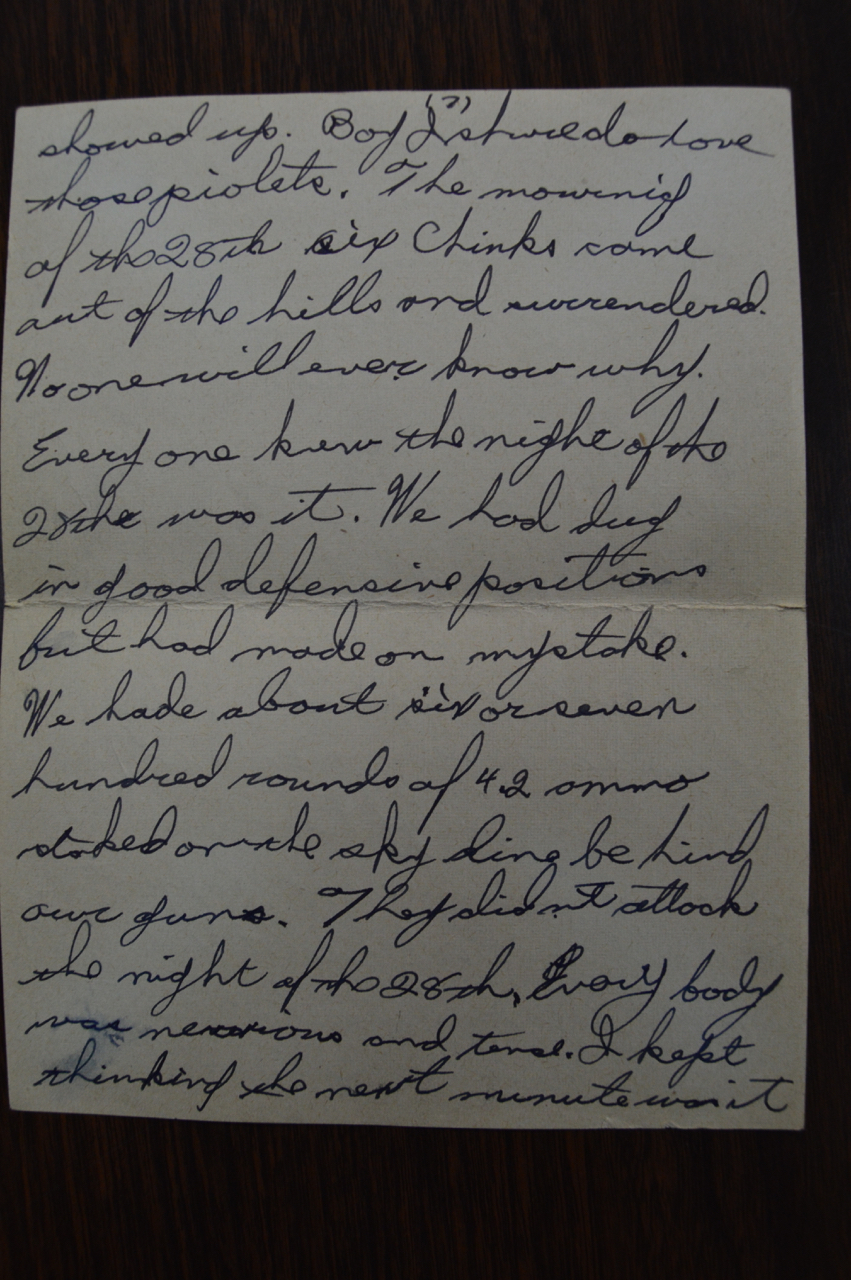 (7)
showed up. Boy I shure do love
those piolets. The mournig
of the 28th six Chinks come
out of the hills and surrendered.
No one will ever know why.
Every one kew the night of the
28the was it. We had dug
in good defensive positions
but had made on mystake.
We hade about six or seven
hundred rounds of 4.2 ammo
staked on the sky line be hind
our guns. They didn't attack
the night of the 28th, Every body
was and tense. I kept
thinking the next minute was it